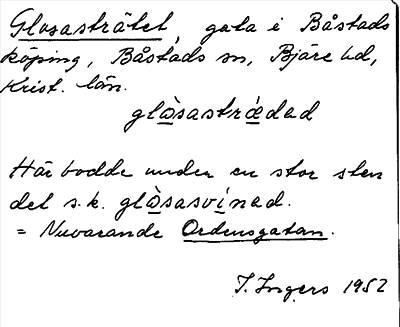 Glosasträtet, gata i Båstads
köping, Båstads sn, Bjäre hd,
Krist. län.
glò̲sastrǽ̲ded
Här bodde under en stor sten
det s.k. glò̲sasví̲ned.
= Nuvarande Ordensgatan.
I. Ingers 1952